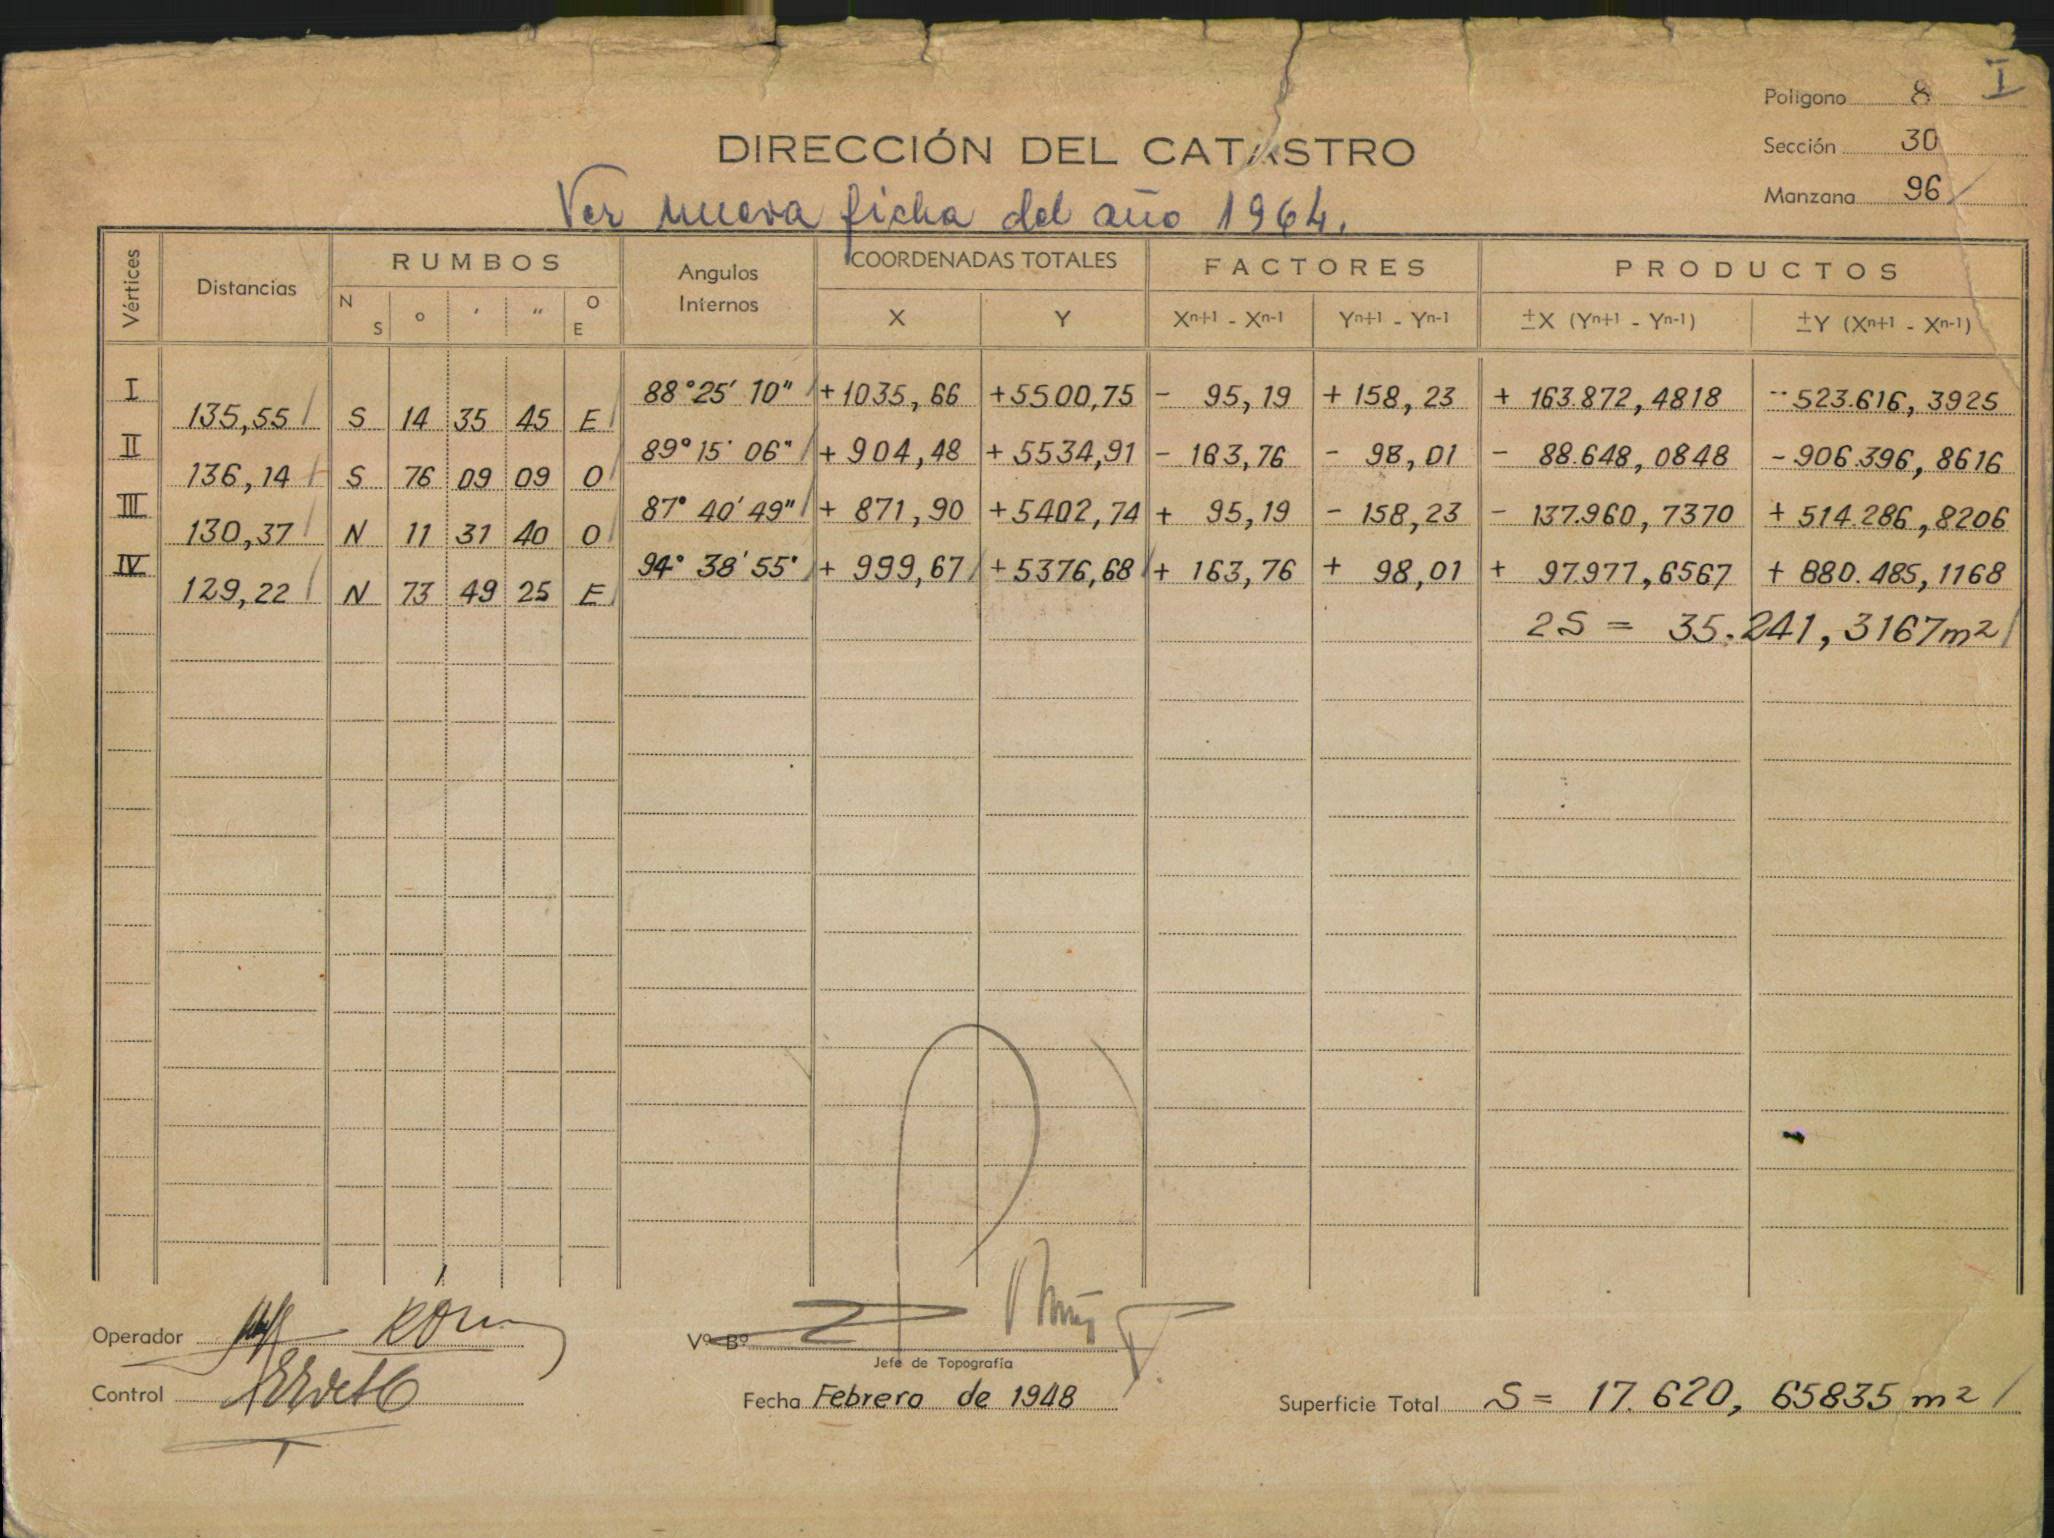 Polígono 8 I
DIRECCIÓN DEL CATASTRO
Sección 30
Manzana 96
Ver nueva ficha del año 1964.
Vértices Distancias RUMBOS Angulos Internos COORDENADAS TOTALES FACTORES PRODUCTOS
N S ° ′ ″ O E X Y Xⁿ⁺¹ - Xⁿ⁻¹ Yⁿ⁺¹ - Yⁿ⁻¹ ±X (Yⁿ⁺¹ - Yⁿ⁻¹) ±Y (Xⁿ⁺¹ - Xⁿ⁻¹)
I 88° 25' 10" +1035,66 +5500,75 - 95,19 + 158,23 + 163.872,4818 - 523.616,3925
135,55 S 14 35 45 E
II 89° 15' 06" + 904,48 + 5534,91 - 163,76 - 98,01 - 88.648,0848 - 906.396,8616
136,14 S 76 09 09 O
III 87° 40' 49" + 871,90 +5402,74 + 95,19 - 158,23 - 137.960,7370 + 514.286,8206
130,37 N 11 31 40 O
IV 94° 38' 55" + 999,67 +5376,68 + 163,76 + 98,01 + 97.977,6567 + 880.485,1168
129,22 N 73 49 25 E
2S = 35.241,3167 m²
Operador
Vº Bº
Jefe de Topografía
Control
Fecha Febrero de 1948
Superficie Total S = 17.620,65835 m²